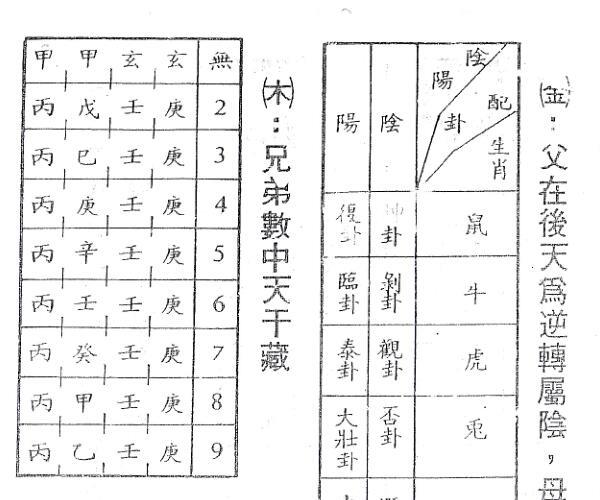 ㈮：父在後天爲逆轉屬陰，母
陰陽卦配生肖
鼠
牛
虎
兎
陰
卦
剝卦
觀卦
否卦
陽
復卦
臨卦
泰卦
大壯卦
㈭：兄弟數中天干藏
甲 甲 玄 玄 無
丙 戊 壬 庚 2
丙 巳 壬 庚 3
丙 庚 壬 庚 4
丙 辛 壬 庚 5
丙 壬 壬 庚 6
丙 癸 壬 庚 7
丙 甲 壬 庚 8
丙 乙 壬 庚 9